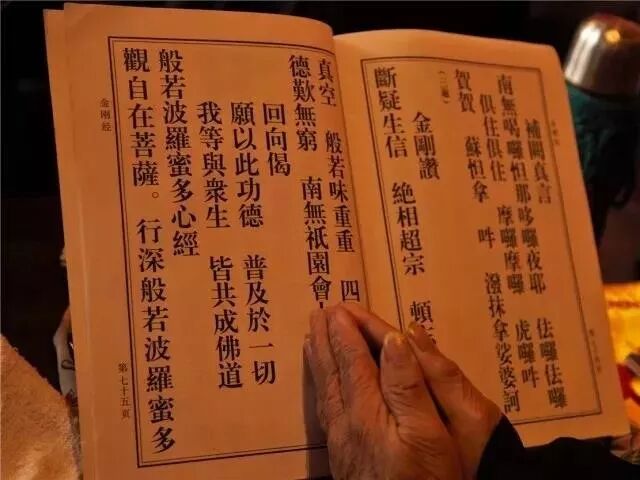 補闕真言
南無喝囉怛那哆囉夜耶 佉囉佉囉
俱住俱住 摩囉摩囉 虎囉吽
賀賀 蘇怛拿 吽 潑抹拿娑婆訶
(三遍)
金剛讚
斷疑生信 絕相超宗 頓
真空 般若味重重 四
德歎無窮 南無祇園會
回向偈
願以此功德 普及於一切
我等與衆生 皆共成佛道
般若波羅蜜多心經
觀自在菩薩。行深般若波羅蜜多
金剛经
第七十五頁